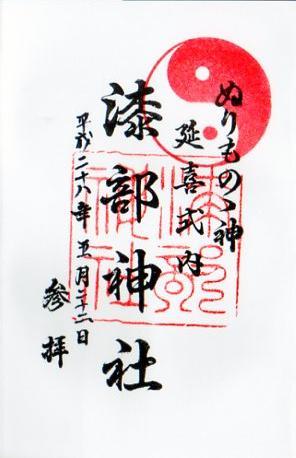 ぬりものゝ神
延喜式内
漆部神社
平成二十八年五月二十二日
参拝
漆部
神社